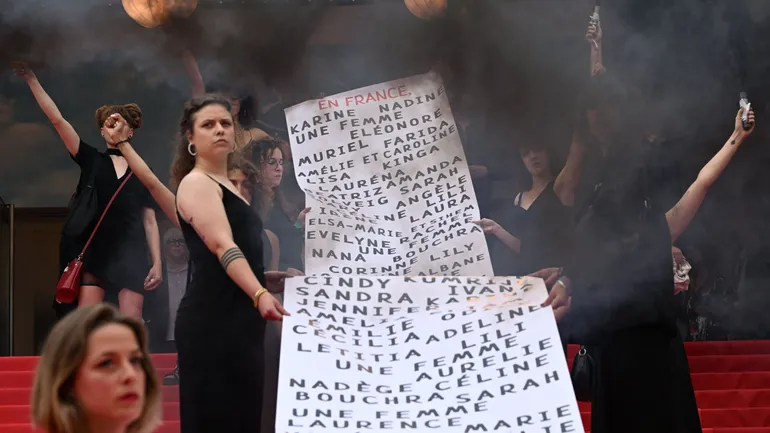 EN FRANCE,
KARINE NADINE
UNE FEMME
ELÉONORE
MURIEL FARIDA
AMÉLIE ET CAROLINE
LISA KINGA
LAURÉNA AMANDA
SARAH
ANGÈLE
LILI
LAURA
ELSA-MARIE
EVELYNE
UNE FEMME
NANA BOUCHRA
CORINNE LILY
CINDY
SANDRA
JENNIFER
AMÉLIE
CÉCILIA ADELINE
LETITIA LILI
UNE FEMME
UNE AURELIE
NADÈGE CÉLINE
BOUCHRA SARAH
UNE FEMME
LAURENCE MARIE